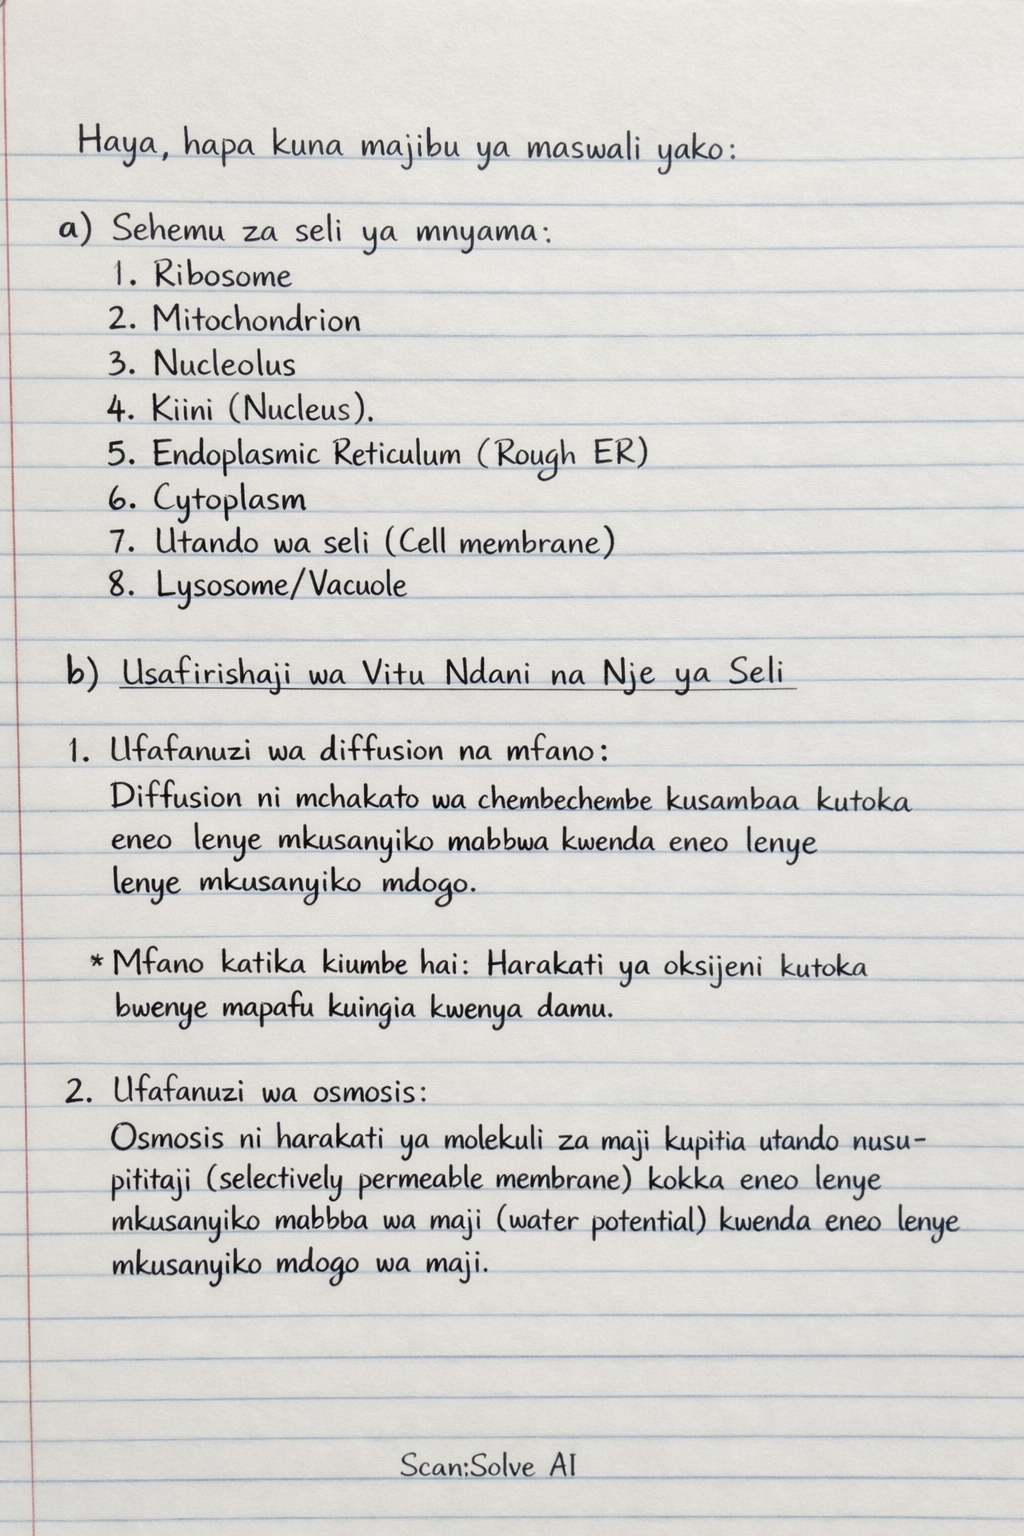 Haya, hapa kuna majibu ya maswali yako:
a) Sehemu za seli ya mnyama:
1. Ribosome
2. Mitochondrion
3. Nucleolus
4. Kiini (Nucleus).
5. Endoplasmic Reticulum (Rough ER)
6. Cytoplasm
7. Utando wa seli (Cell membrane)
8. Lysosome/Vacuole
b) Usafirishaji wa Vitu Ndani na Nje ya Seli
1. Ufafanuzi wa diffusion na mfano:
Diffusion ni mchakato wa chembechembe kusambaa kutoka
eneo lenye mkusanyiko mabbwa kwenda eneo lenye
lenye mkusanyiko mdogo.
* Mfano katika kiumbe hai: Harakati ya oksijeni kutoka
bwenye mapafu kuingia kwenya damu.
2. Ufafanuzi wa osmosis:
Osmosis ni harakati ya molekuli za maji kupitia utando nusu-
pititaji (selectively permeable membrane) kokka eneo lenye
mkusanyiko mabbba wa maji (water potential) kwenda eneo lenye
mkusanyiko mdogo wa maji.
Scan:Solve AI